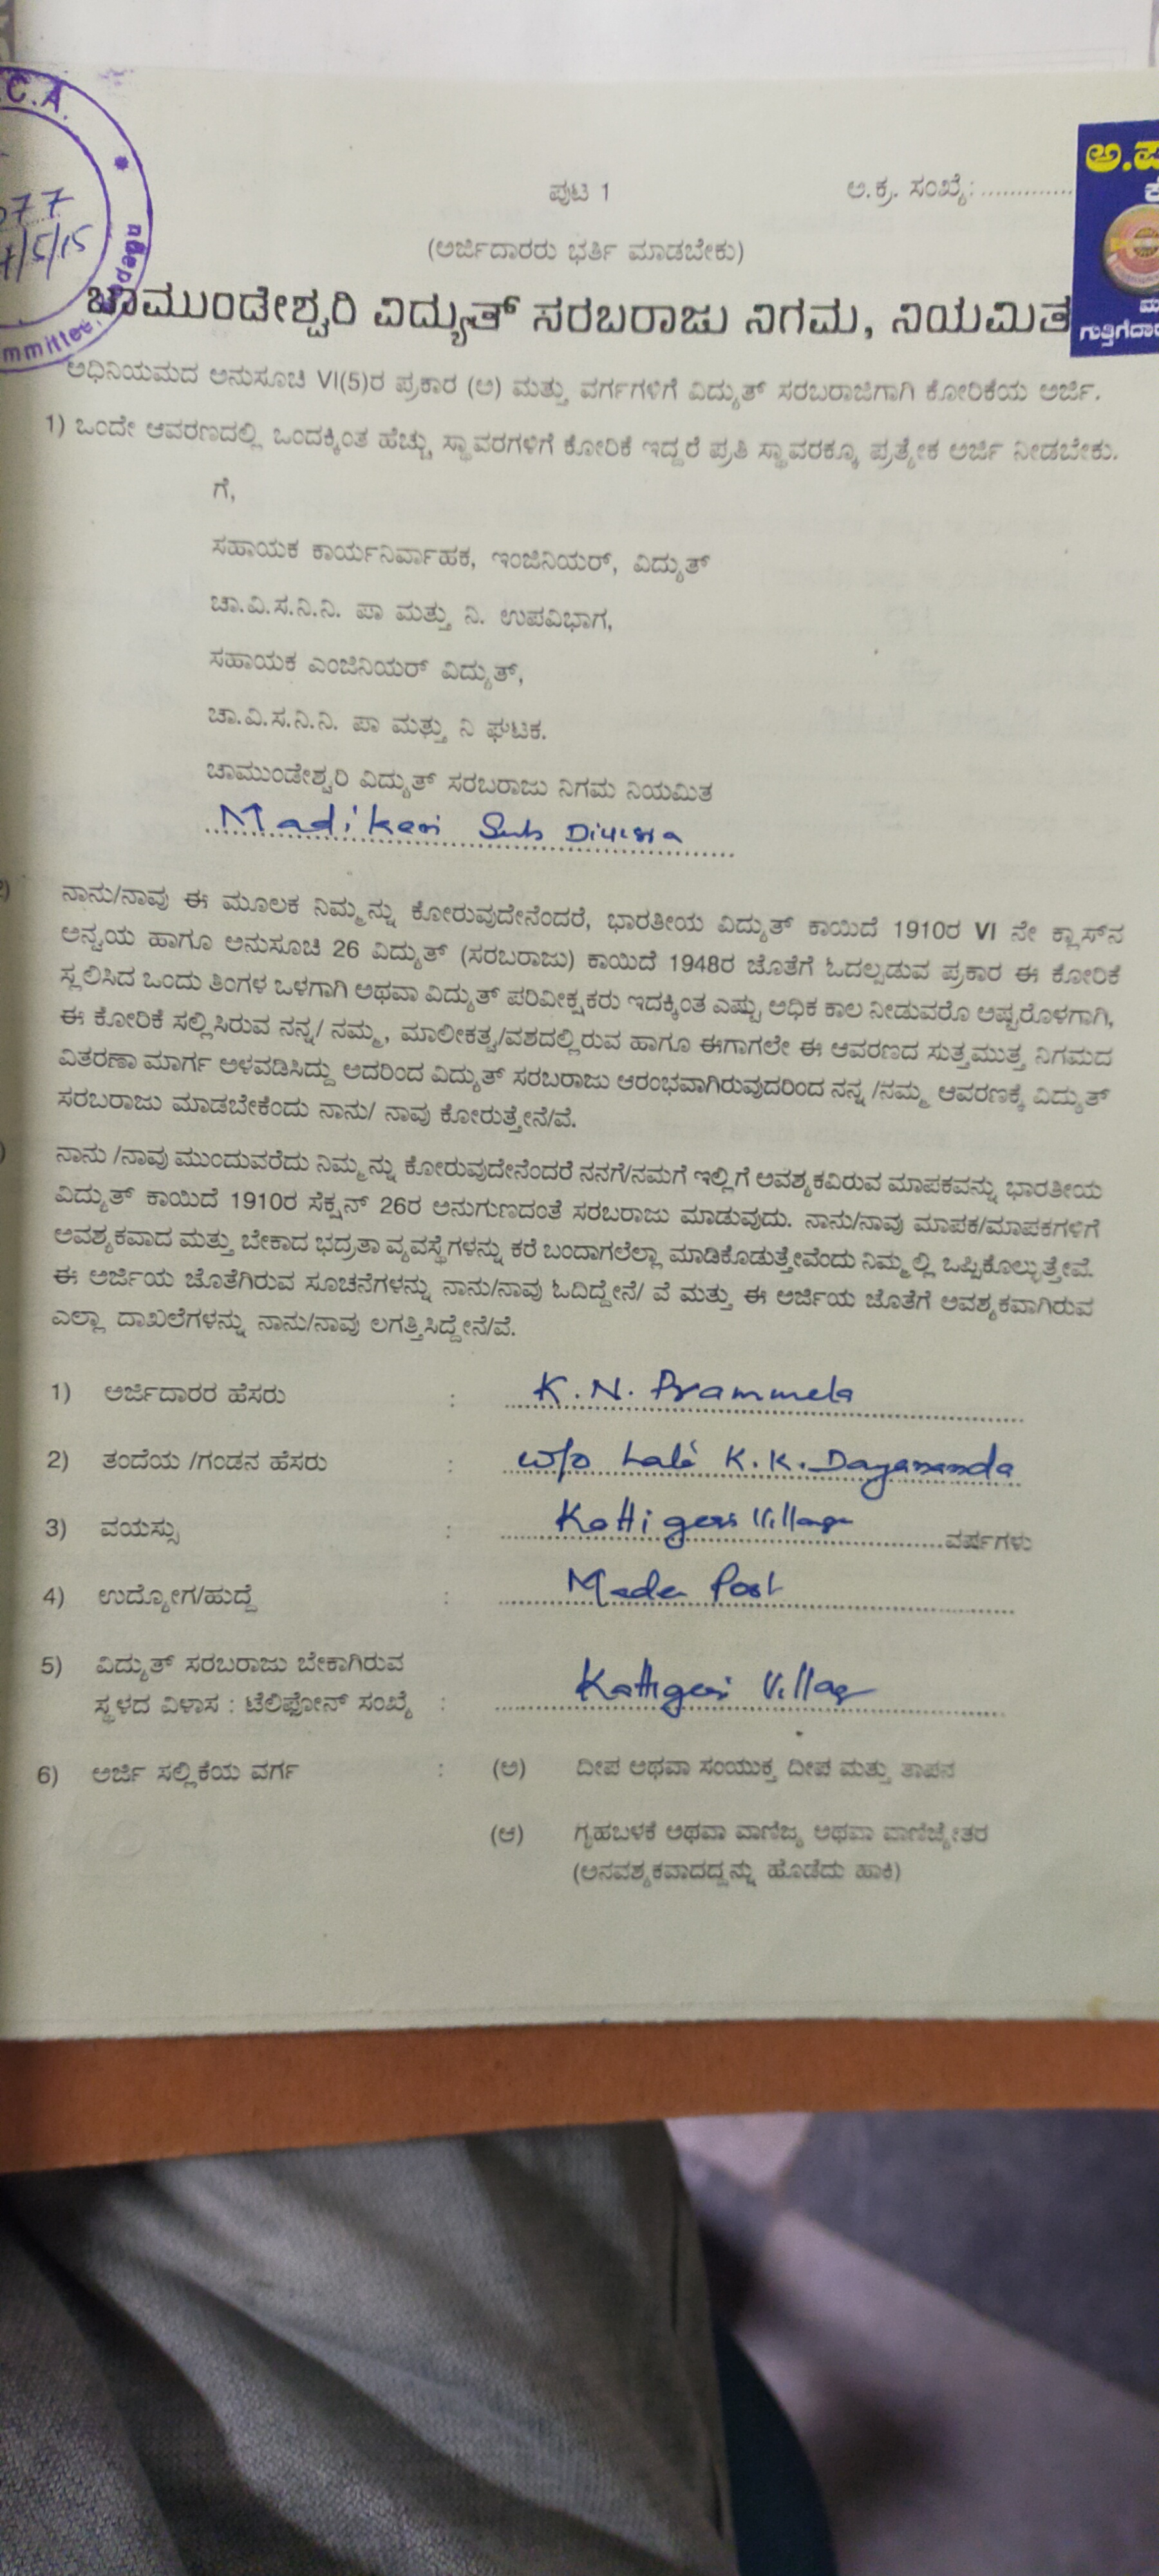 C.A.
077
/5/15
mmittee,
dagu
ಅ.ಪ
ಗುತ್ತಿಗೆದಾ
ಪುಟ 1
ಅ.ಕ್ರ. ಸಂಖ್ಯೆ:.............
(ಅರ್ಜಿದಾರರು ಭರ್ತಿ ಮಾಡಬೇಕು)
ಚಾಮುಂಡೇಶ್ವರಿ ವಿದ್ಯುತ್ ಸರಬರಾಜು ನಿಗಮ, ನಿಯಮಿತ
ಅಧಿನಿಯಮದ ಅನುಸೂಚಿ VI(5)ರ ಪ್ರಕಾರ (ಅ) ಮತ್ತು ವರ್ಗಗಳಿಗೆ ವಿದ್ಯುತ್ ಸರಬರಾಜಿಗಾಗಿ ಕೋರಿಕೆಯ ಅರ್ಜಿ.
1) ಒಂದೇ ಆವರಣದಲ್ಲಿ ಒಂದಕ್ಕಿಂತ ಹೆಚ್ಚು ಸ್ಥಾವರಗಳಿಗೆ ಕೋರಿಕೆ ಇದ್ದರೆ ಪ್ರತಿ ಸ್ಥಾವರಕ್ಕೂ ಪ್ರತ್ಯೇಕ ಅರ್ಜಿ ನೀಡಬೇಕು.
ಗೆ,
ಸಹಾಯಕ ಕಾರ್ಯನಿರ್ವಾಹಕ, ಇಂಜಿನಿಯರ್, ವಿದ್ಯುತ್
ಚಾ.ವಿ.ಸ.ನಿ.ನಿ. ಪಾ ಮತ್ತು ನಿ. ಉಪವಿಭಾಗ,
ಸಹಾಯಕ ಎಂಜಿನಿಯರ್ ವಿದ್ಯುತ್,
ಚಾ.ವಿ.ಸ.ನಿ.ನಿ. ಪಾ ಮತ್ತು ನಿ ಘಟಕ.
ಚಾಮುಂಡೇಶ್ವರಿ ವಿದ್ಯುತ್ ಸರಬರಾಜು ನಿಗಮ ನಿಯಮಿತ
Madikeri Sub
ನಾನು/ನಾವು ಈ ಮೂಲಕ ನಿಮ್ಮನ್ನು ಕೋರುವುದೇನೆಂದರೆ, ಭಾರತೀಯ ವಿದ್ಯುತ್ ಕಾಯಿದೆ 1910ರ VI ನೇ ಕ್ಲಾಸ್‌ನ
ಅನ್ವಯ ಹಾಗೂ ಅನುಸೂಚಿ 26 ವಿದ್ಯುತ್ (ಸರಬರಾಜು) ಕಾಯಿದೆ 1948ರ ಜೊತೆಗೆ ಓದಲ್ಪಡುವ ಪ್ರಕಾರ ಈ ಕೋರಿಕೆ
ಸ್ಲಲಿಸಿದ ಒಂದು ತಿಂಗಳ ಒಳಗಾಗಿ ಅಥವಾ ವಿದ್ಯುತ್ ಪರಿವೀಕ್ಷಕರು ಇದಕ್ಕಿಂತ ಎಷ್ಟು ಅಧಿಕ ಕಾಲ ನೀಡುವರೊ ಅಷ್ಟರೊಳಗಾಗಿ,
ಈ ಕೋರಿಕೆ ಸಲ್ಲಿಸಿರುವ ನನ್ನ/ ನಮ್ಮ, ಮಾಲೀಕತ್ವ/ವಶದಲ್ಲಿರುವ ಹಾಗೂ ಈಗಾಗಲೇ ಈ ಆವರಣದ ಸುತ್ತಮುತ್ತ ನಿಗಮದ
ವಿತರಣಾ ಮಾರ್ಗ ಅಳವಡಿಸಿದ್ದು ಅದರಿಂದ ವಿದ್ಯುತ್ ಸರಬರಾಜು ಆರಂಭವಾಗಿರುವುದರಿಂದ ನನ್ನ /ನಮ್ಮ ಆವರಣಕ್ಕೆ ವಿದ್ಯುತ್
ಸರಬರಾಜು ಮಾಡಬೇಕೆಂದು ನಾನು/ ನಾವು ಕೋರುತ್ತೇನೆ/ವೆ.
ನಾನು /ನಾವು ಮುಂದುವರೆದು ನಿಮ್ಮನ್ನು ಕೋರುವುದೇನೆಂದರೆ ನನಗೆ/ನಮಗೆ ಇಲ್ಲಿಗೆ ಅವಶ್ಯಕವಿರುವ ಮಾಪಕವನ್ನು ಭಾರತೀಯ
ವಿದ್ಯುತ್ ಕಾಯಿದೆ 1910ರ ಸೆಕ್ಷನ್ 26ರ ಅನುಗುಣದಂತೆ ಸರಬರಾಜು ಮಾಡುವುದು. ನಾನು/ನಾವು ಮಾಪಕ/ಮಾಪಕಗಳಿಗೆ
ಅವಶ್ಯಕವಾದ ಮತ್ತು ಬೇಕಾದ ಭದ್ರತಾ ವ್ಯವಸ್ಥೆಗಳನ್ನು ಕರೆ ಬಂದಾಗಲೆಲ್ಲಾ ಮಾಡಿಕೊಡುತ್ತೇವೆಂದು ನಿಮ್ಮಲ್ಲಿ ಒಪ್ಪಿಕೊಲ್ಳುತ್ತೇವೆ.
ಈ ಅರ್ಜಿಯ ಜೊತೆಗಿರುವ ಸೂಚನೆಗಳನ್ನು ನಾನು/ನಾವು ಓದಿದ್ದೇನೆ/ ವೆ ಮತ್ತು ಈ ಅರ್ಜಿಯ ಜೊತೆಗೆ ಅವಶ್ಯಕವಾಗಿರುವ
ಎಲ್ಲಾ ದಾಖಲೆಗಳನ್ನು ನಾನು/ನಾವು ಲಗತ್ತಿಸಿದ್ದೇನೆ/ವೆ.
1) ಅರ್ಜಿದಾರರ ಹೆಸರು : K.N. Prammela
2) ತಂದೆಯ /ಗಂಡನ ಹೆಸರು : w/o Late K.K. Dayananda
3) ವಯಸ್ಸು : Kattigeri Village ವರ್ಷಗಳು
4) ಉದ್ಯೋಗ/ಹುದ್ದೆ : Made Post
5) ವಿದ್ಯುತ್ ಸರಬರಾಜು ಬೇಕಾಗಿರುವ
ಸ್ಥಳದ ವಿಳಾಸ : ಟೆಲಿಫೋನ್ ಸಂಖ್ಯೆ : Kattigeri Village
6) ಅರ್ಜಿ ಸಲ್ಲಿಕೆಯ ವರ್ಗ : (ಅ) ದೀಪ ಅಥವಾ ಸಂಯುಕ್ತ ದೀಪ ಮತ್ತು ತಾಪನ
(ಆ) ಗೃಹಬಳಕೆ ಅಥವಾ ವಾಣಿಜ್ಯ ಅಥವಾ ವಾಣಿಜ್ಯೇತರ
(ಅನವಶ್ಯಕವಾದದ್ದನ್ನು ಹೊಡೆದು ಹಾಕಿ)